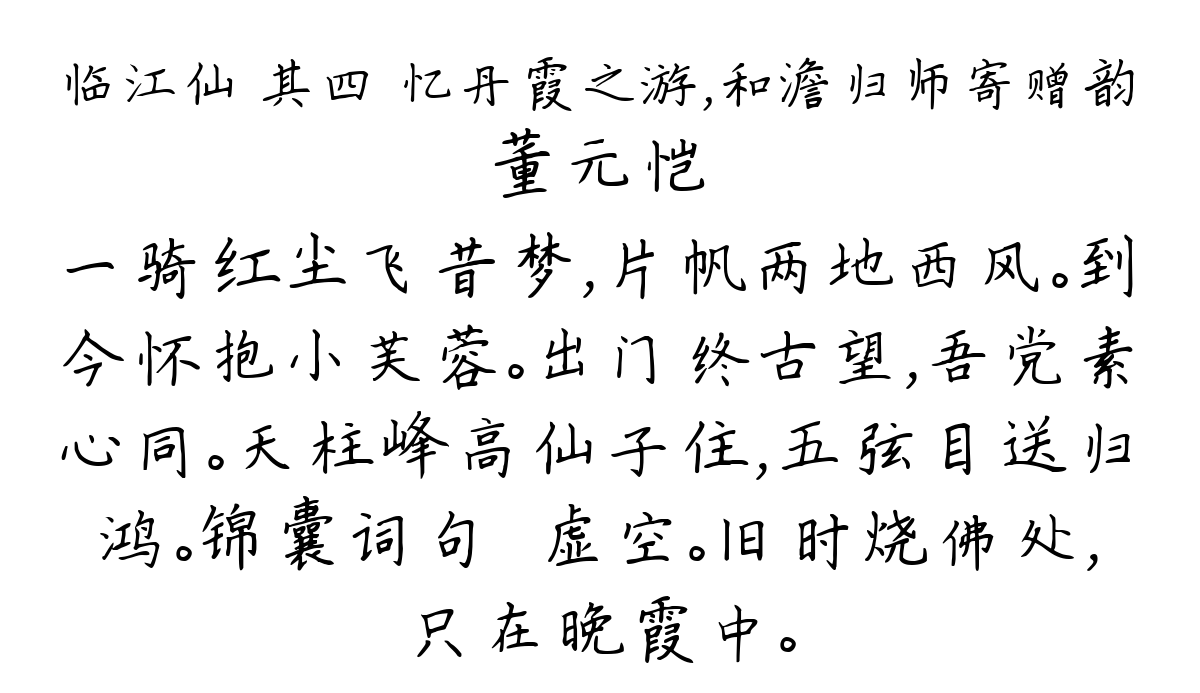 临江仙 其四 忆丹霞之游,和澹归师寄赠韵
董元恺
一骑红尘飞昔梦,片帆两地西风。到
今怀抱小芙蓉。出门终古望,吾党素
心同。天柱峰高仙子住,五弦目送归
鸿。锦囊词句 虚空。旧时烧佛处,
只在晚霞中。